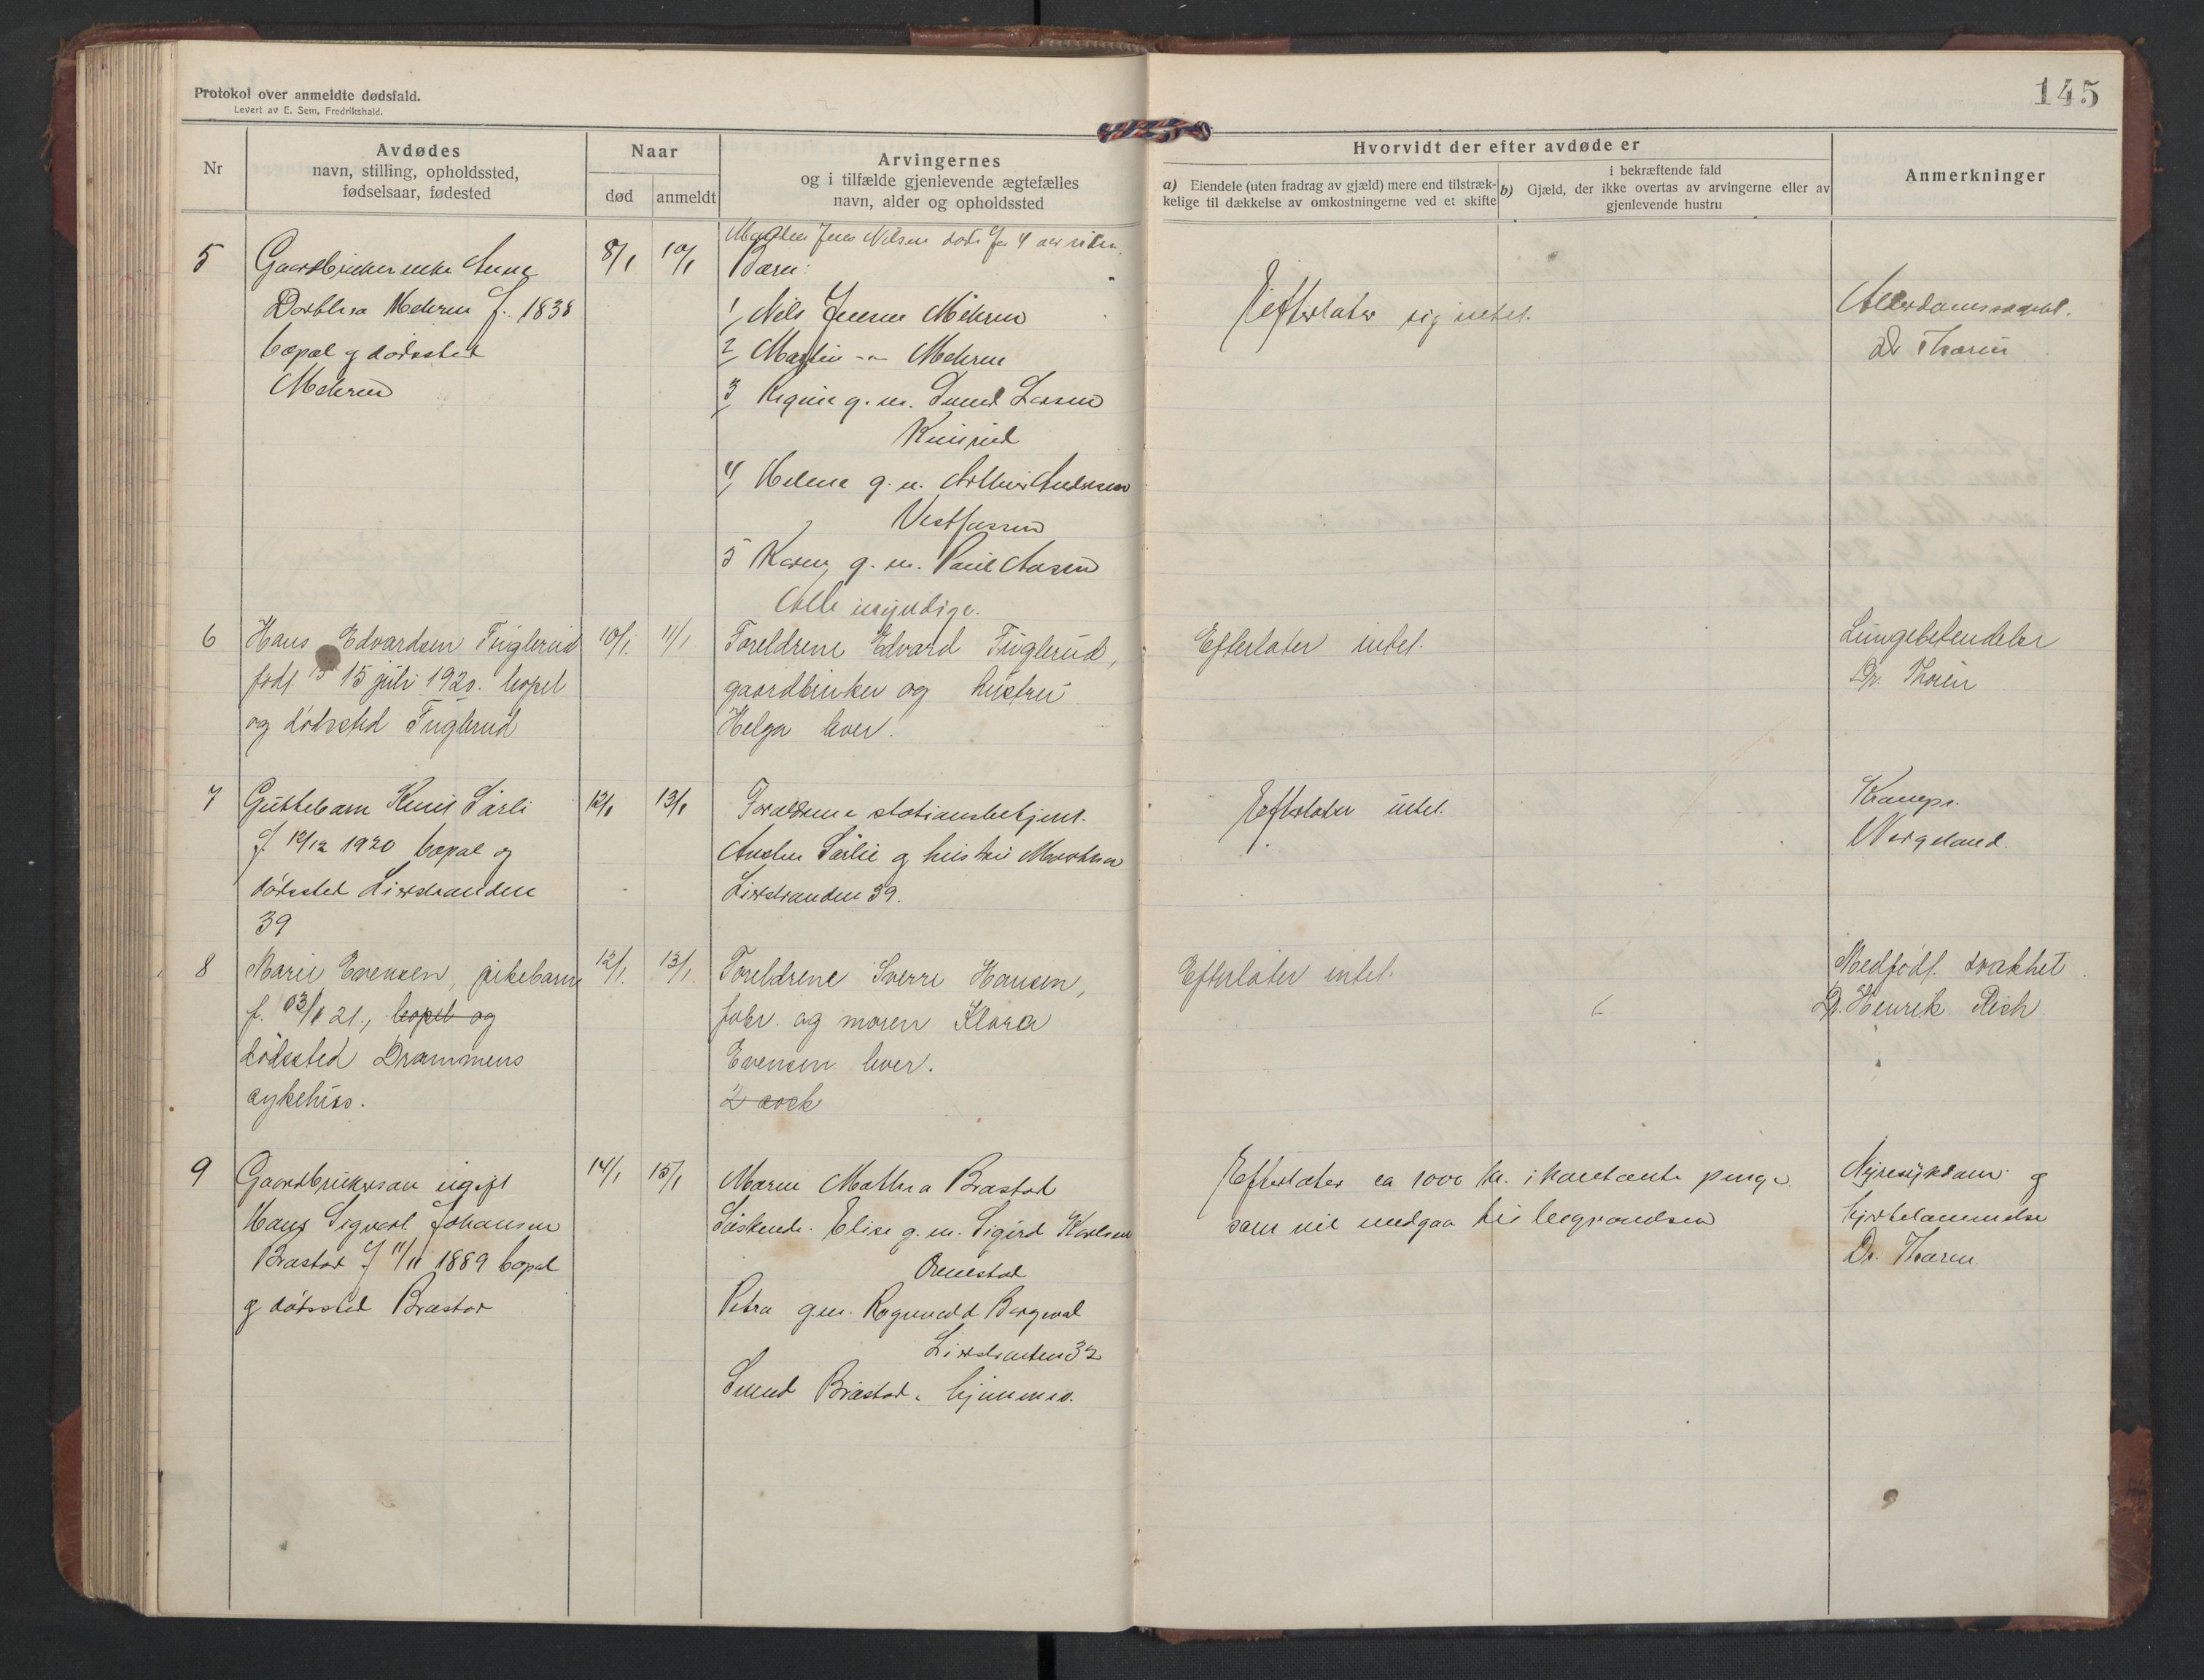 145
Protokol over anmeldte dødsfald.
Levert av E. Sem, Fredrikshald.
Nr
Avdødes
navn, stilling, opholdssted,
fødselsaar, fødested
Naar
død
anmeldt
Arvingernes
og i tilfælde gjenlevende ægtefælles
navn, alder og opholdssted
Hvorvidt der efter avdøde er
a) Eiendele (uten fradrag av gjæld) mere end tilstræk-
kelige til dækkelse av omkostningerne ved et skifte
i bekræftende fald
b) Gjæld, der ikke overtas av arvingerne eller av
gjenlevende hustru
Anmerkninger
5
Gaardbruker enke Anne
Dorthea Mehren f. 1838
bopal og dødssted
Mehren
8/1
10/1
Jens Nilsen døde for 4 aar siden
Barn:
1, Nils Jensen Mehren
2, Martin -"- Mehren
3, Regine g. m. Svend Larsen
4, Helene g. m. Arthur Andersen
Vestfossen
5 Karen g. m. Paul Aasen
Alle myndige.
Efterlater sig intet.
Dr Thoren
6
Hans Edvardsen Fuglerud
født 15 juli 1920. bopel
og dødssted Fuglerud
10/1.
11/1
Foreldrene Edvard Fuglerud,
gaardbruker og hustru
Helga lever.
Efterlater intet.
Lungebetendelse
Dr. Thorén
7
Guttebarn Knut Sørli
f 12/12 1920 bopal og
dødssted Lierstranden
39
12/1
13/1
Foreldrene stationsbetjent
Anders Sørlie og hustru Martha
Lierstranden 39.
Efterlater intet.
Krampe.
Wergeland.
8
Marie Evensen, pikebarn
f. 03/1 21., bopel og
dødssted Drammens
sykehus.
12/1.
13/1.
Foreldrene Sverre Hansen,
fabr. og moren Klara
Evensen lever.
Efterlater intet.
Medfødt svakhet
Dr. Henrik Rich
9
Gaardbrukersøn ugift
Hans Sigvart Johansen
Brastad f 11/11 1889 bopal
og dødssted Brastad
14/1
15/1
Moren Mathea Brastad
Søskende. Elise g. m. Sigurd Karlsen
Petra g.m. Ragnvald Bergwal
Lierstranden 32
Svend Brastad, hjemme.
Efterlater ca 1000 kr. i kontante penge
som vil medgaa til begravelsen
Nyresykdom og
hjertelammelse
Dr. Thoren.